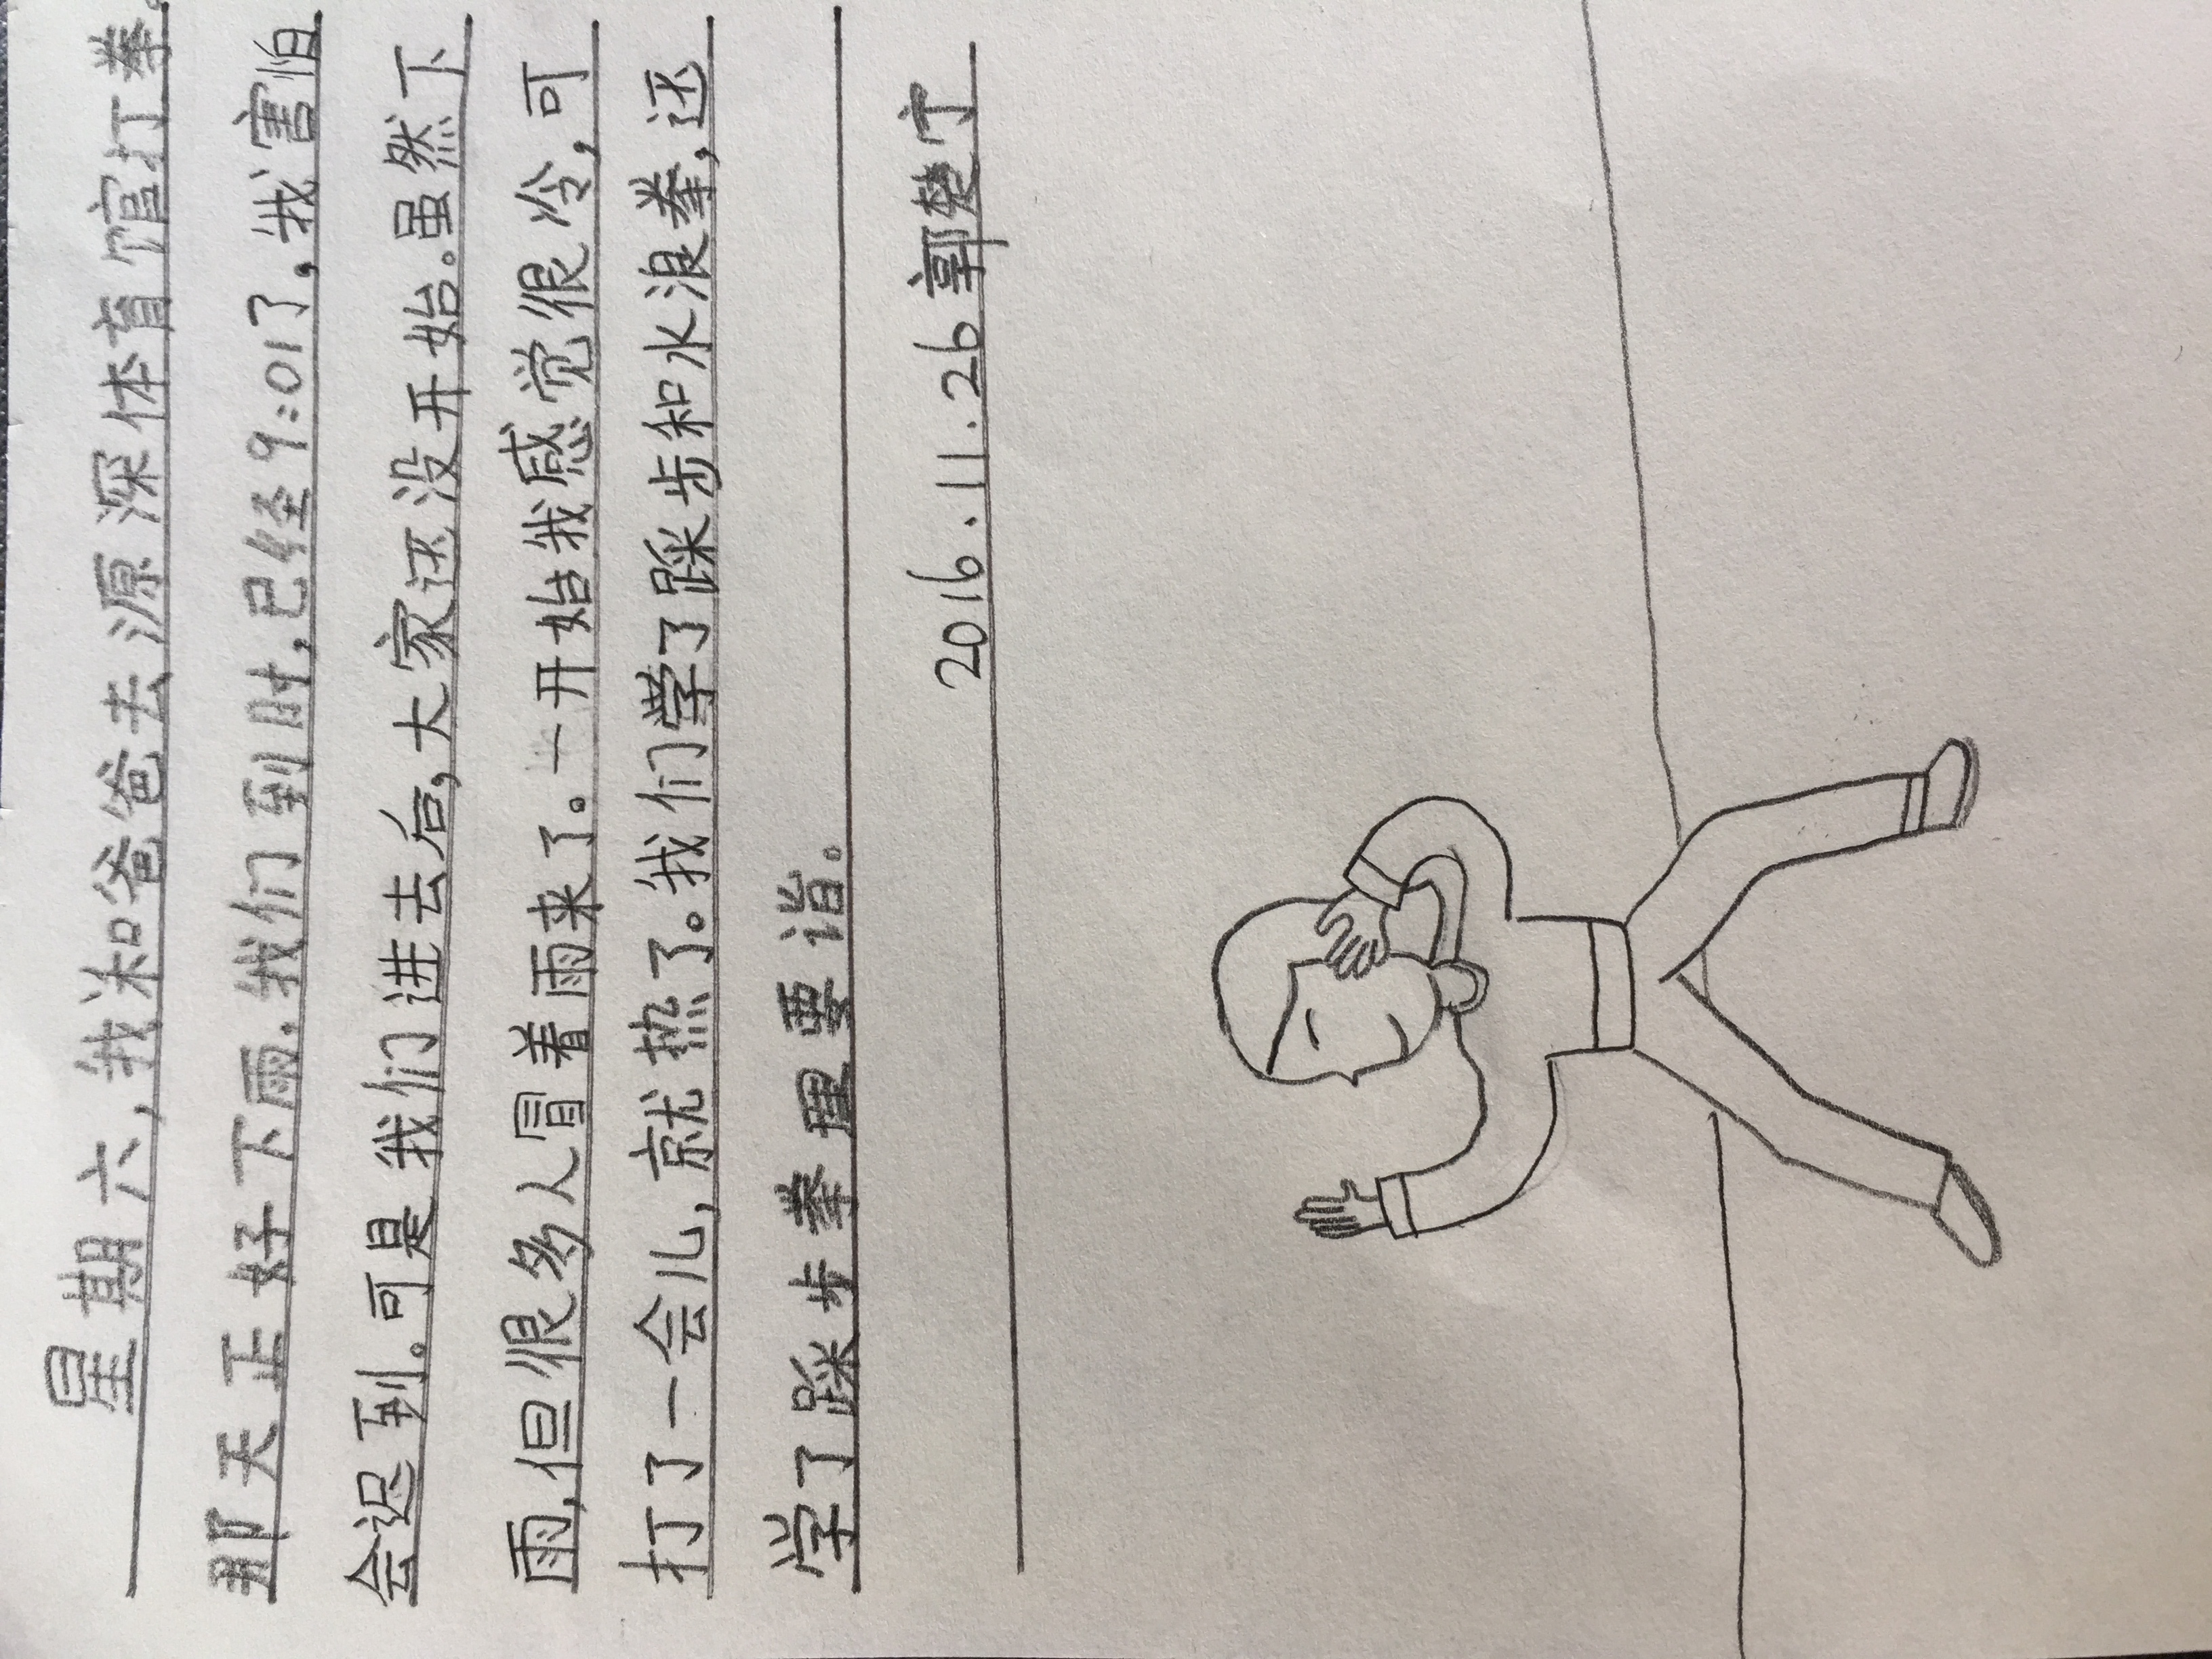 星期六,我和爸爸去源深体育馆打拳。
那天正好下雨.我们到时,已经9:01了,我害怕
会迟到。可是我们进去后,大家还没开始.虽然下
雨,但很多人冒着雨来了。一开始我感觉很冷,可
打了一会儿,就热了。我们学了踩步和水浪拳,还
学了踩步拳理要诣。
2016.11.26郭楚宁